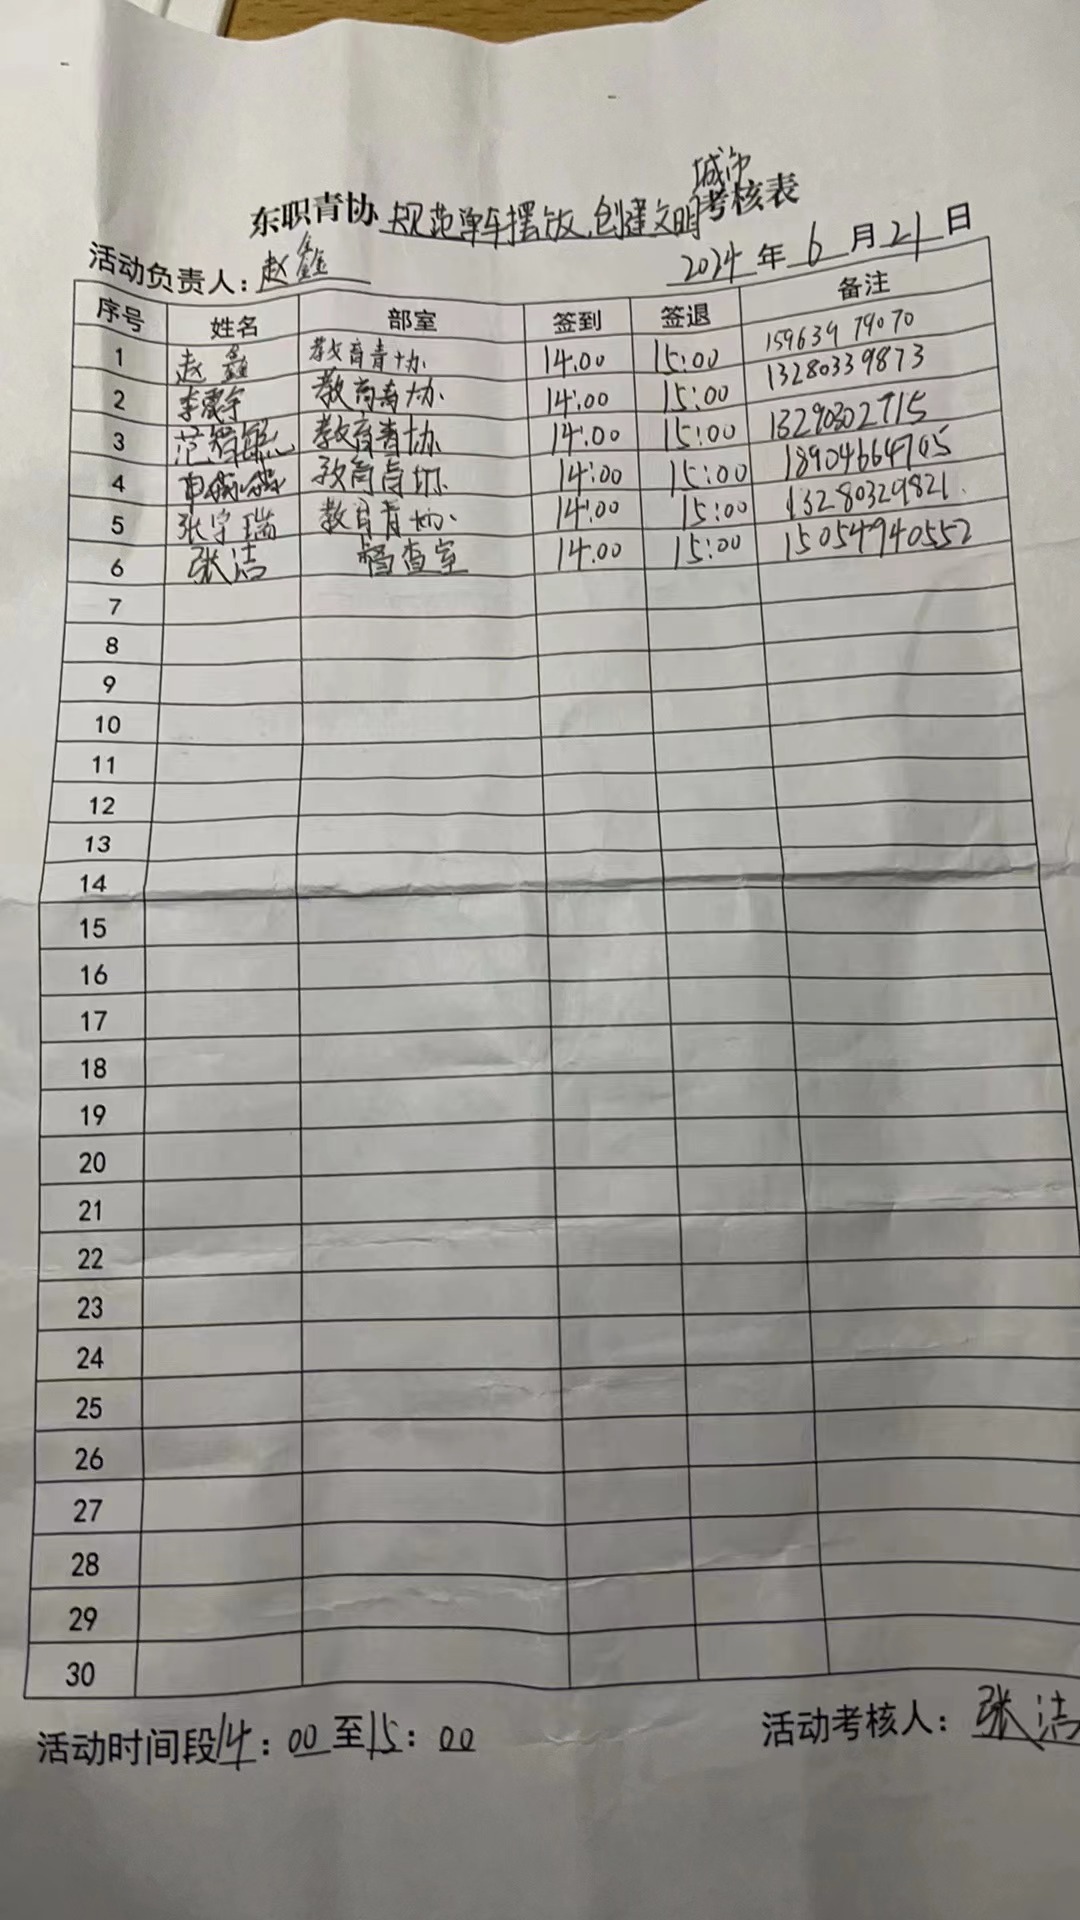 城市
东职青协 规范单车摆放,创建文明 考核表
活动负责人: 赵鑫 2024 年 6 月 21 日
序号 姓名 部室 签到 签退 备注
1 赵鑫 教育青协 14:00 15:00 15963979070
2 李震宇 教育青协 14:00 15:00 13280339873
3 范智 教育青协 14:00 15:00 13290302715
4 教育青协 14:00 15:00 18904664705
5 张宇瑞 教育青协 14:00 15:00 13280329821
6 张洁 督查室 14:00 15:00 15054940552
7
8
9
10
11
12
13
14
15
16
17
18
19
20
21
22
23
24
25
26
27
28
29
30
活动时间段 14:00 至 15:00 活动考核人: 张洁